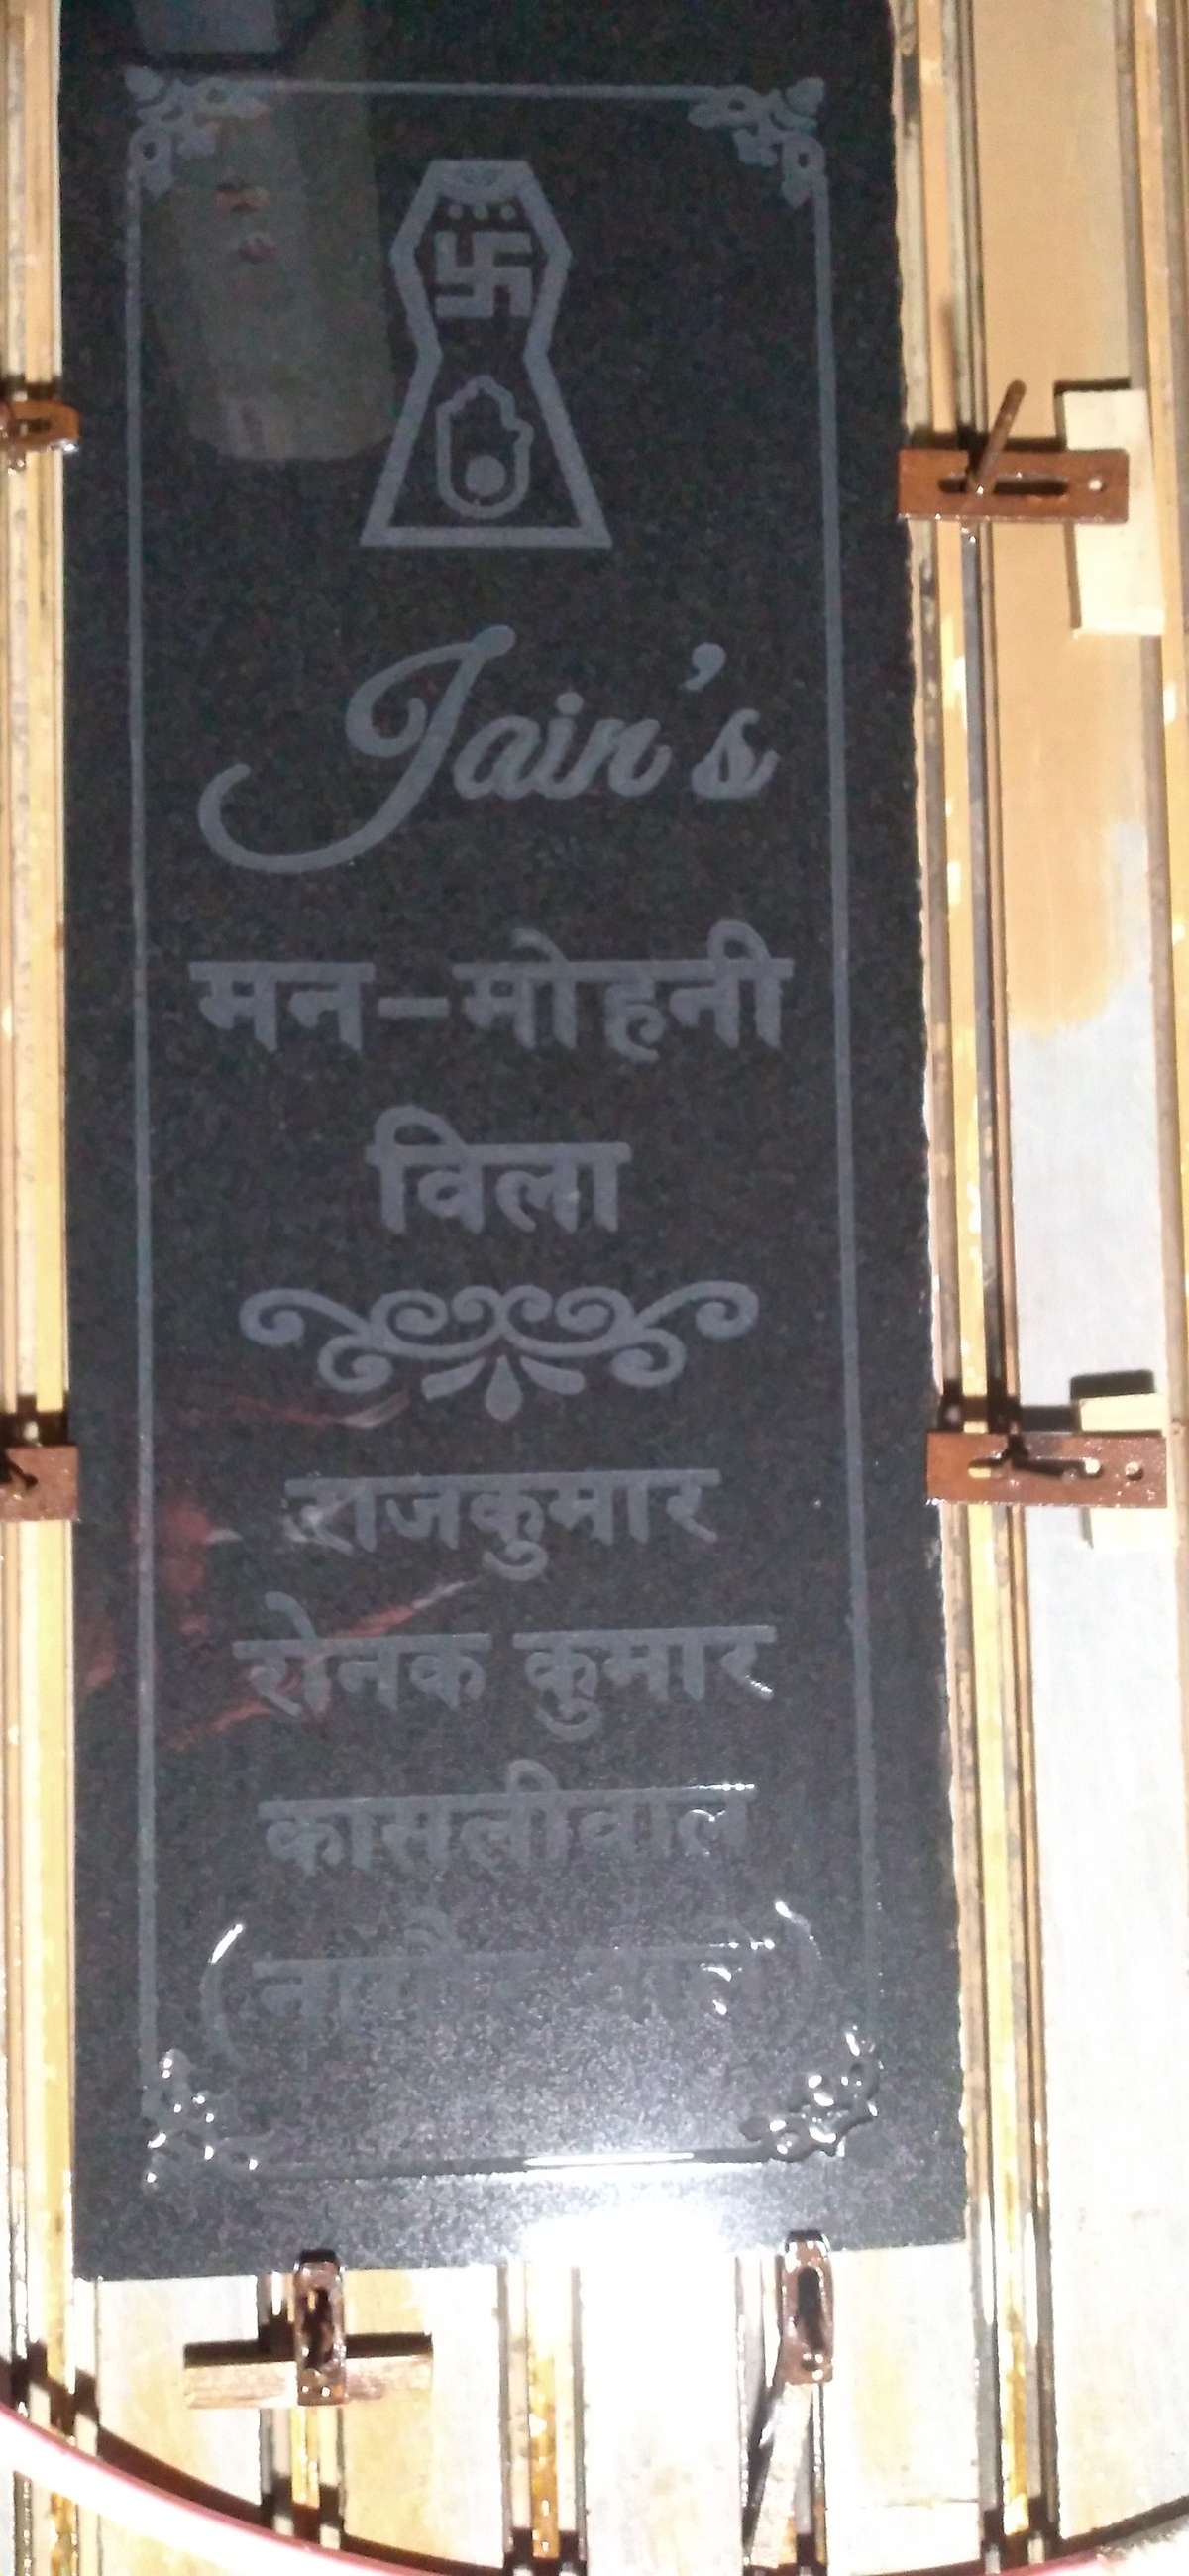 Jain's
मन-मोहनी
विला
राजकुमार
रोनक कुमार
कासलीवाल